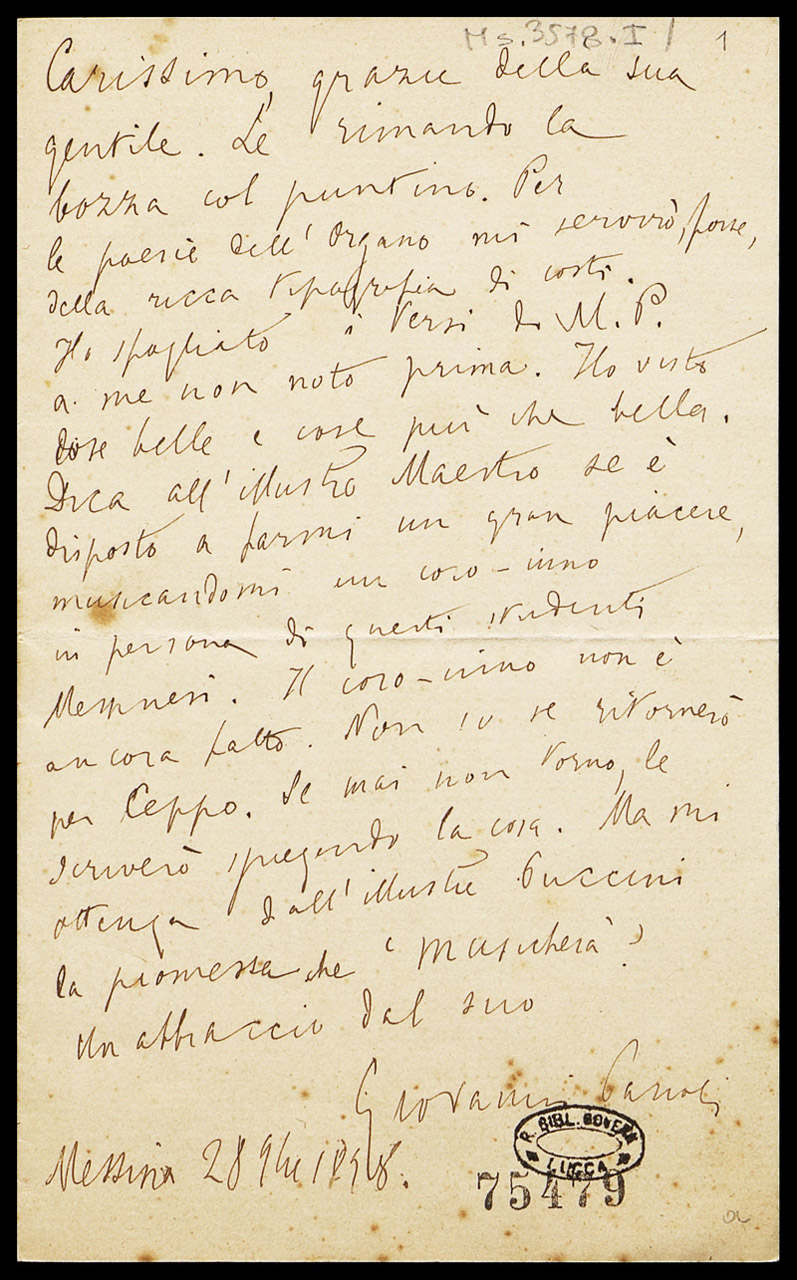 Ms. 3578. I / 1
Carissimo, grazie della sua
gentile. Le rimando la
bozza col puntino. Per
le poesie dell'Organo mi servirò, forse,
della ricca tipografia di costì.
Ho spogliato i Versi di M. P.
a me non noto prima. Ho visto
cose belle e cose più che belle.
Dica all'illustre Maestro se è
disposto a farmi un gran piacere,
musicandomi un coro-inno
in persona di questi studenti
Messinesi. Il coro-inno non è
ancora fatto. Non so se ritornerò
per Ceppo. Se mai non torno, le
scriverò spiegando la cosa. Ma mi
ottenga dall'illustre Puccini
la promessa che 'musicherà'
Un abbraccio dal suo
Giovanni Pascoli
Messina 28 9bre 1898.
R. BIBL. GOVERN.
LUCCA
75479